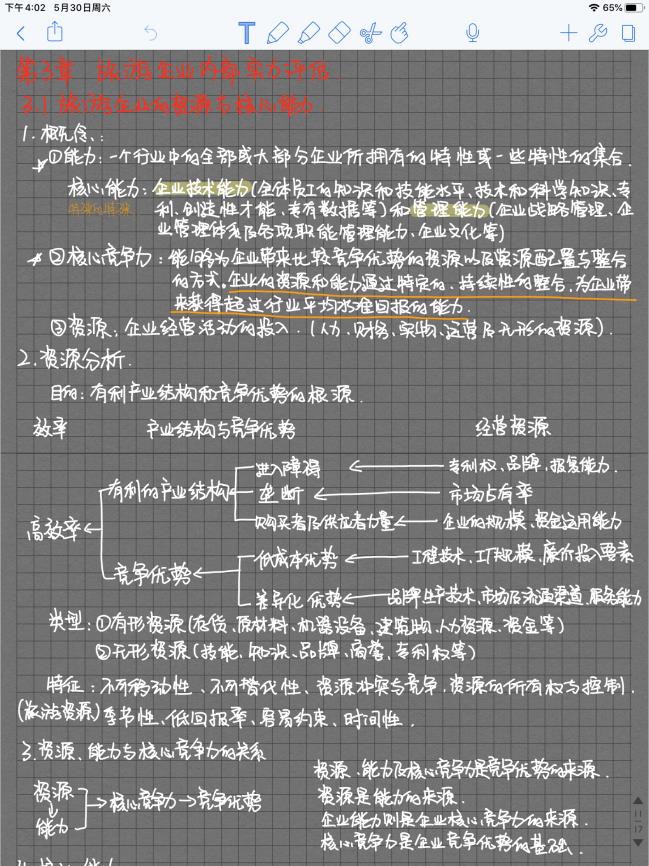 下午4:02 5月30日周六
65%
第3章 旅游企业内部实力评估
3.1 旅游企业的资源与核心能力
1.概念:
①能力:一个行业中的全部或大部分企业所拥有的特性或一些特性的集合.
核心能力:企业技术能力(全体员工的知识和技能水平、技术和科学知识、专
利、创造性才能、专有数据等)和管理能力(企业战略管理、企
业管理体系及各项职能管理能力、企业文化等)
②核心竞争力:能够为企业带来比较竞争优势的资源以及资源配置与整合
的方式。企业的资源和能力通过特定的、持续性的整合,为企业带
来获得超过行业平均水准回报的能力.
③资源:企业经营活动的投入.(人力、财务、实物、运营及无形的资源).
2.资源分析.
目的:有利产业结构和竞争优势的根源.
效率 产业结构与竞争优势 经营资源
进入障碍 ← 专利权、品牌、报复能力.
有利的产业结构 垄断 ← 市场占有率
购买者及供应者力量 ← 企业的规模、资金运用能力
高效率
低成本优势 ← 工程技术、工厂规模、廉价投入要素
竞争优势
差异化优势 ← 品牌生产技术、市场及流通渠道、服务能力
类型:①有形资源(存货、原材料、机器设备、建筑物、人力资源、资金等)
②无形资源(技能、知识、品牌、商誉、专利权等)
特征:不可移动性、不可替代性、资源冲突与竞争、资源的所有权与控制.
(旅游资源)季节性、低回报率、容易约束、时间性.
3.资源、能力与核心竞争力的关系
资源、能力及核心竞争力是竞争优势的来源.
资源 → 核心竞争力 → 竞争优势
资源是能力的来源.
能力
企业能力则是企业核心竞争力的来源.
核心竞争力是企业竞争优势的基础.
11
17